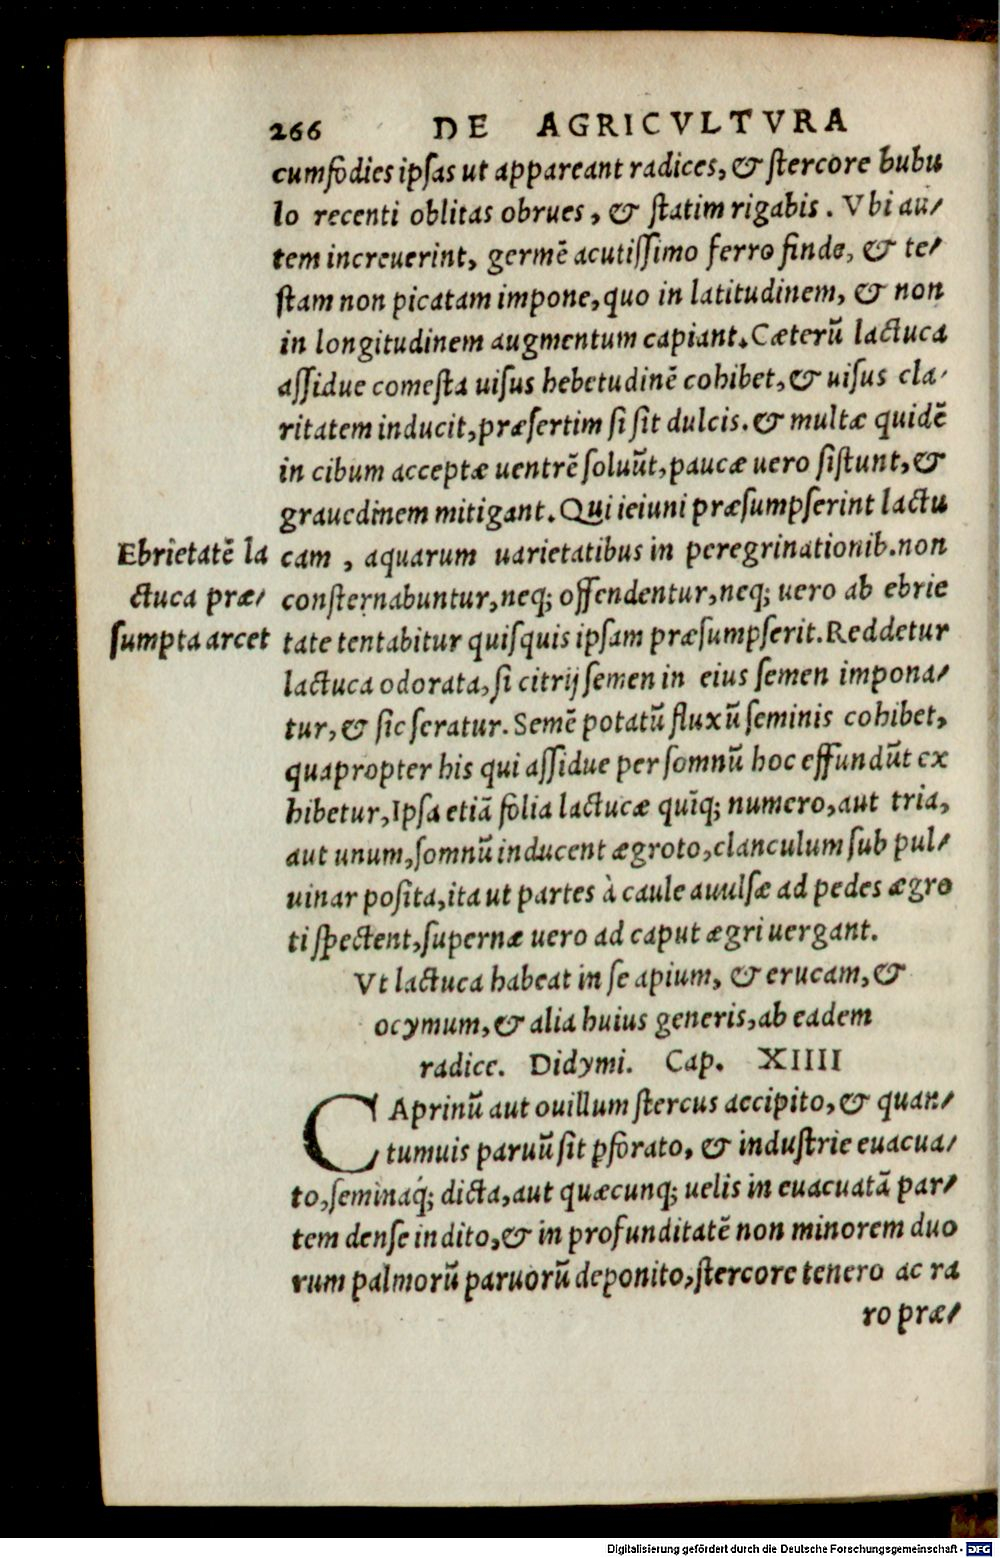 266 DE AGRICVLTVRA
cumfodies ipsas ut appareant radices, & stercore bubu
lo recenti oblitas obrues, & statim rigabis. Vbi au/
tem increuerint, germē acutissimo ferro finde, & te/
stam non picatam impone, quo in latitudinem, & non
in longitudinem augmentum capiant. Cæterū lactuca
assidue comesta uisus hebetudinē cohibet, & uisus cla/
ritatem inducit, præsertim si sit dulcis. & multæ quidē
in cibum acceptæ uentrē soluūt, paucæ uero sistunt, &
grauedinem mitigant. Qui ieiuni præsumpserint lactu
Ebrietatē la
ctuca præ/
sumpta arcet
cam, aquarum uarietatibus in peregrinationib. non
consternabuntur, neq; offendentur, neq; uero ab ebrie
tate tentabitur quisquis ipsam præsumpserit. Reddetur
lactuca odorata, si citrij semen in eius semen impona/
tur, & sic seratur. Semē potatū fluxū seminis cohibet,
quapropter his qui assidue per somnū hoc effundūt ex
hibetur, Ipsa etiā folia lactucæ quīq; numero, aut tria,
aut unum, somnū inducent ægroto, clanculum sub pul/
uinar posita, ita ut partes à caule auulsæ ad pedes ægro
ti spectent, supernæ uero ad caput ægri uergant.
Vt lactuca habeat in se apium, & erucam, &
ocymum, & alia huius generis, ab eadem
radice. Didymi. Cap. XIIII
CAprinū aut ouillum stercus accipito, & quan/
tumuis paruū sit ꝑforato, & industrie euacua/
to, seminaq́; dicta, aut quæcunq; uelis in euacuatā par/
tem dense indito, & in profunditatē non minorem duo
rum palmorū paruorū deponito, stercore tenero ac ra
ro præ/
Digitalisierung gefördert durch die Deutsche Forschungsgemeinschaft - DFG